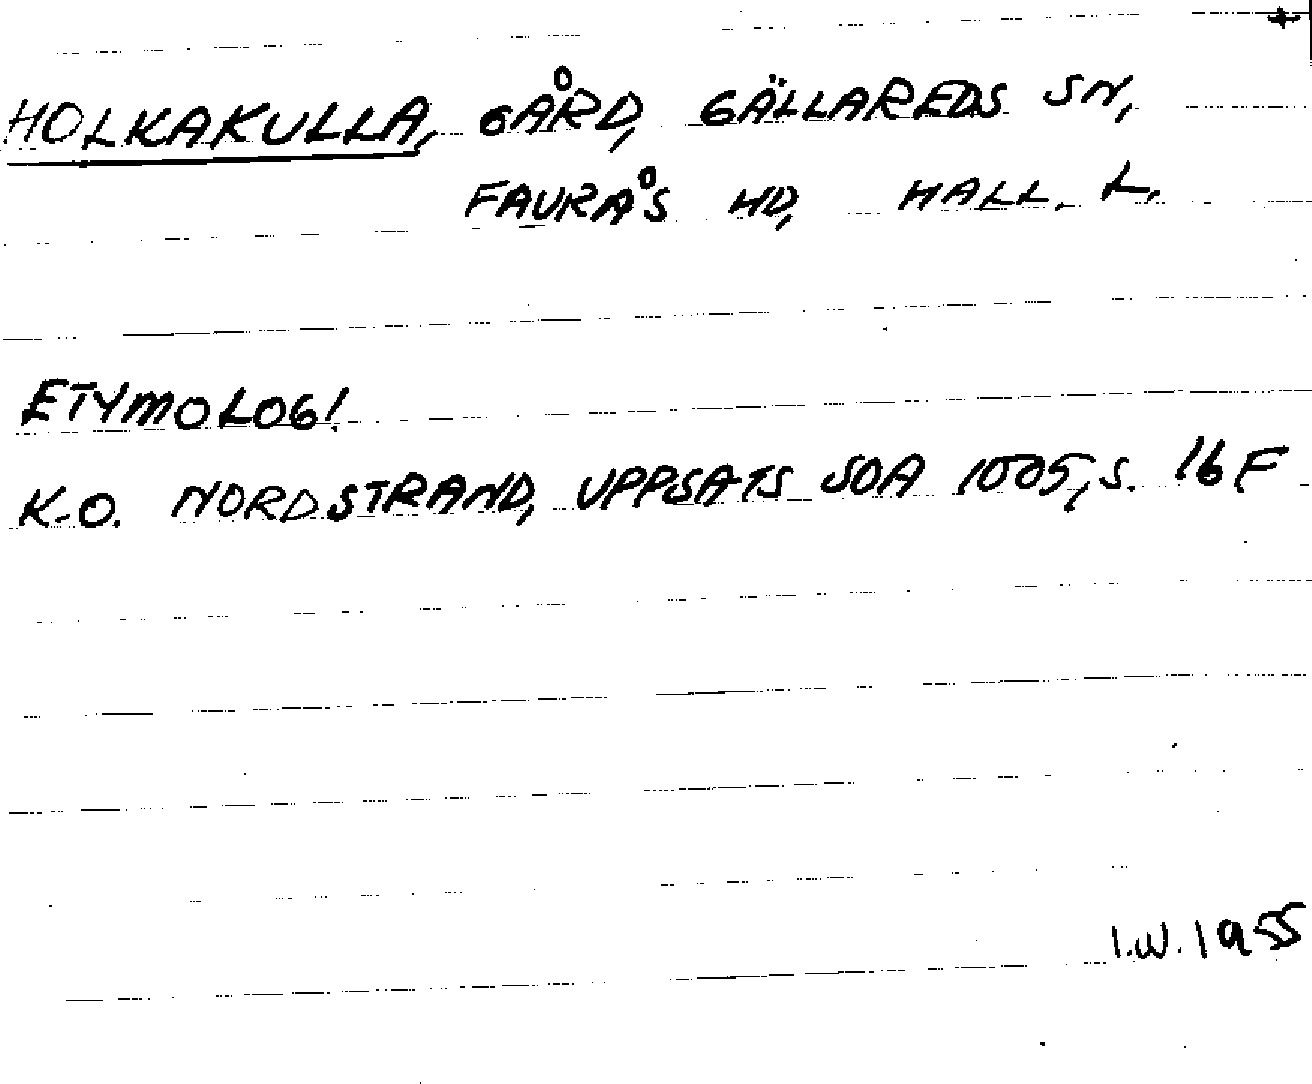 HOLKAKULLA, GÅRD, GÄLLAREDS SN,
FAURÅS HD, HALL. L.
ETYMOLOGI
K-O. NORDSTRAND, UPPSATS SOA 1005, S. 16 F
I.W. 1955